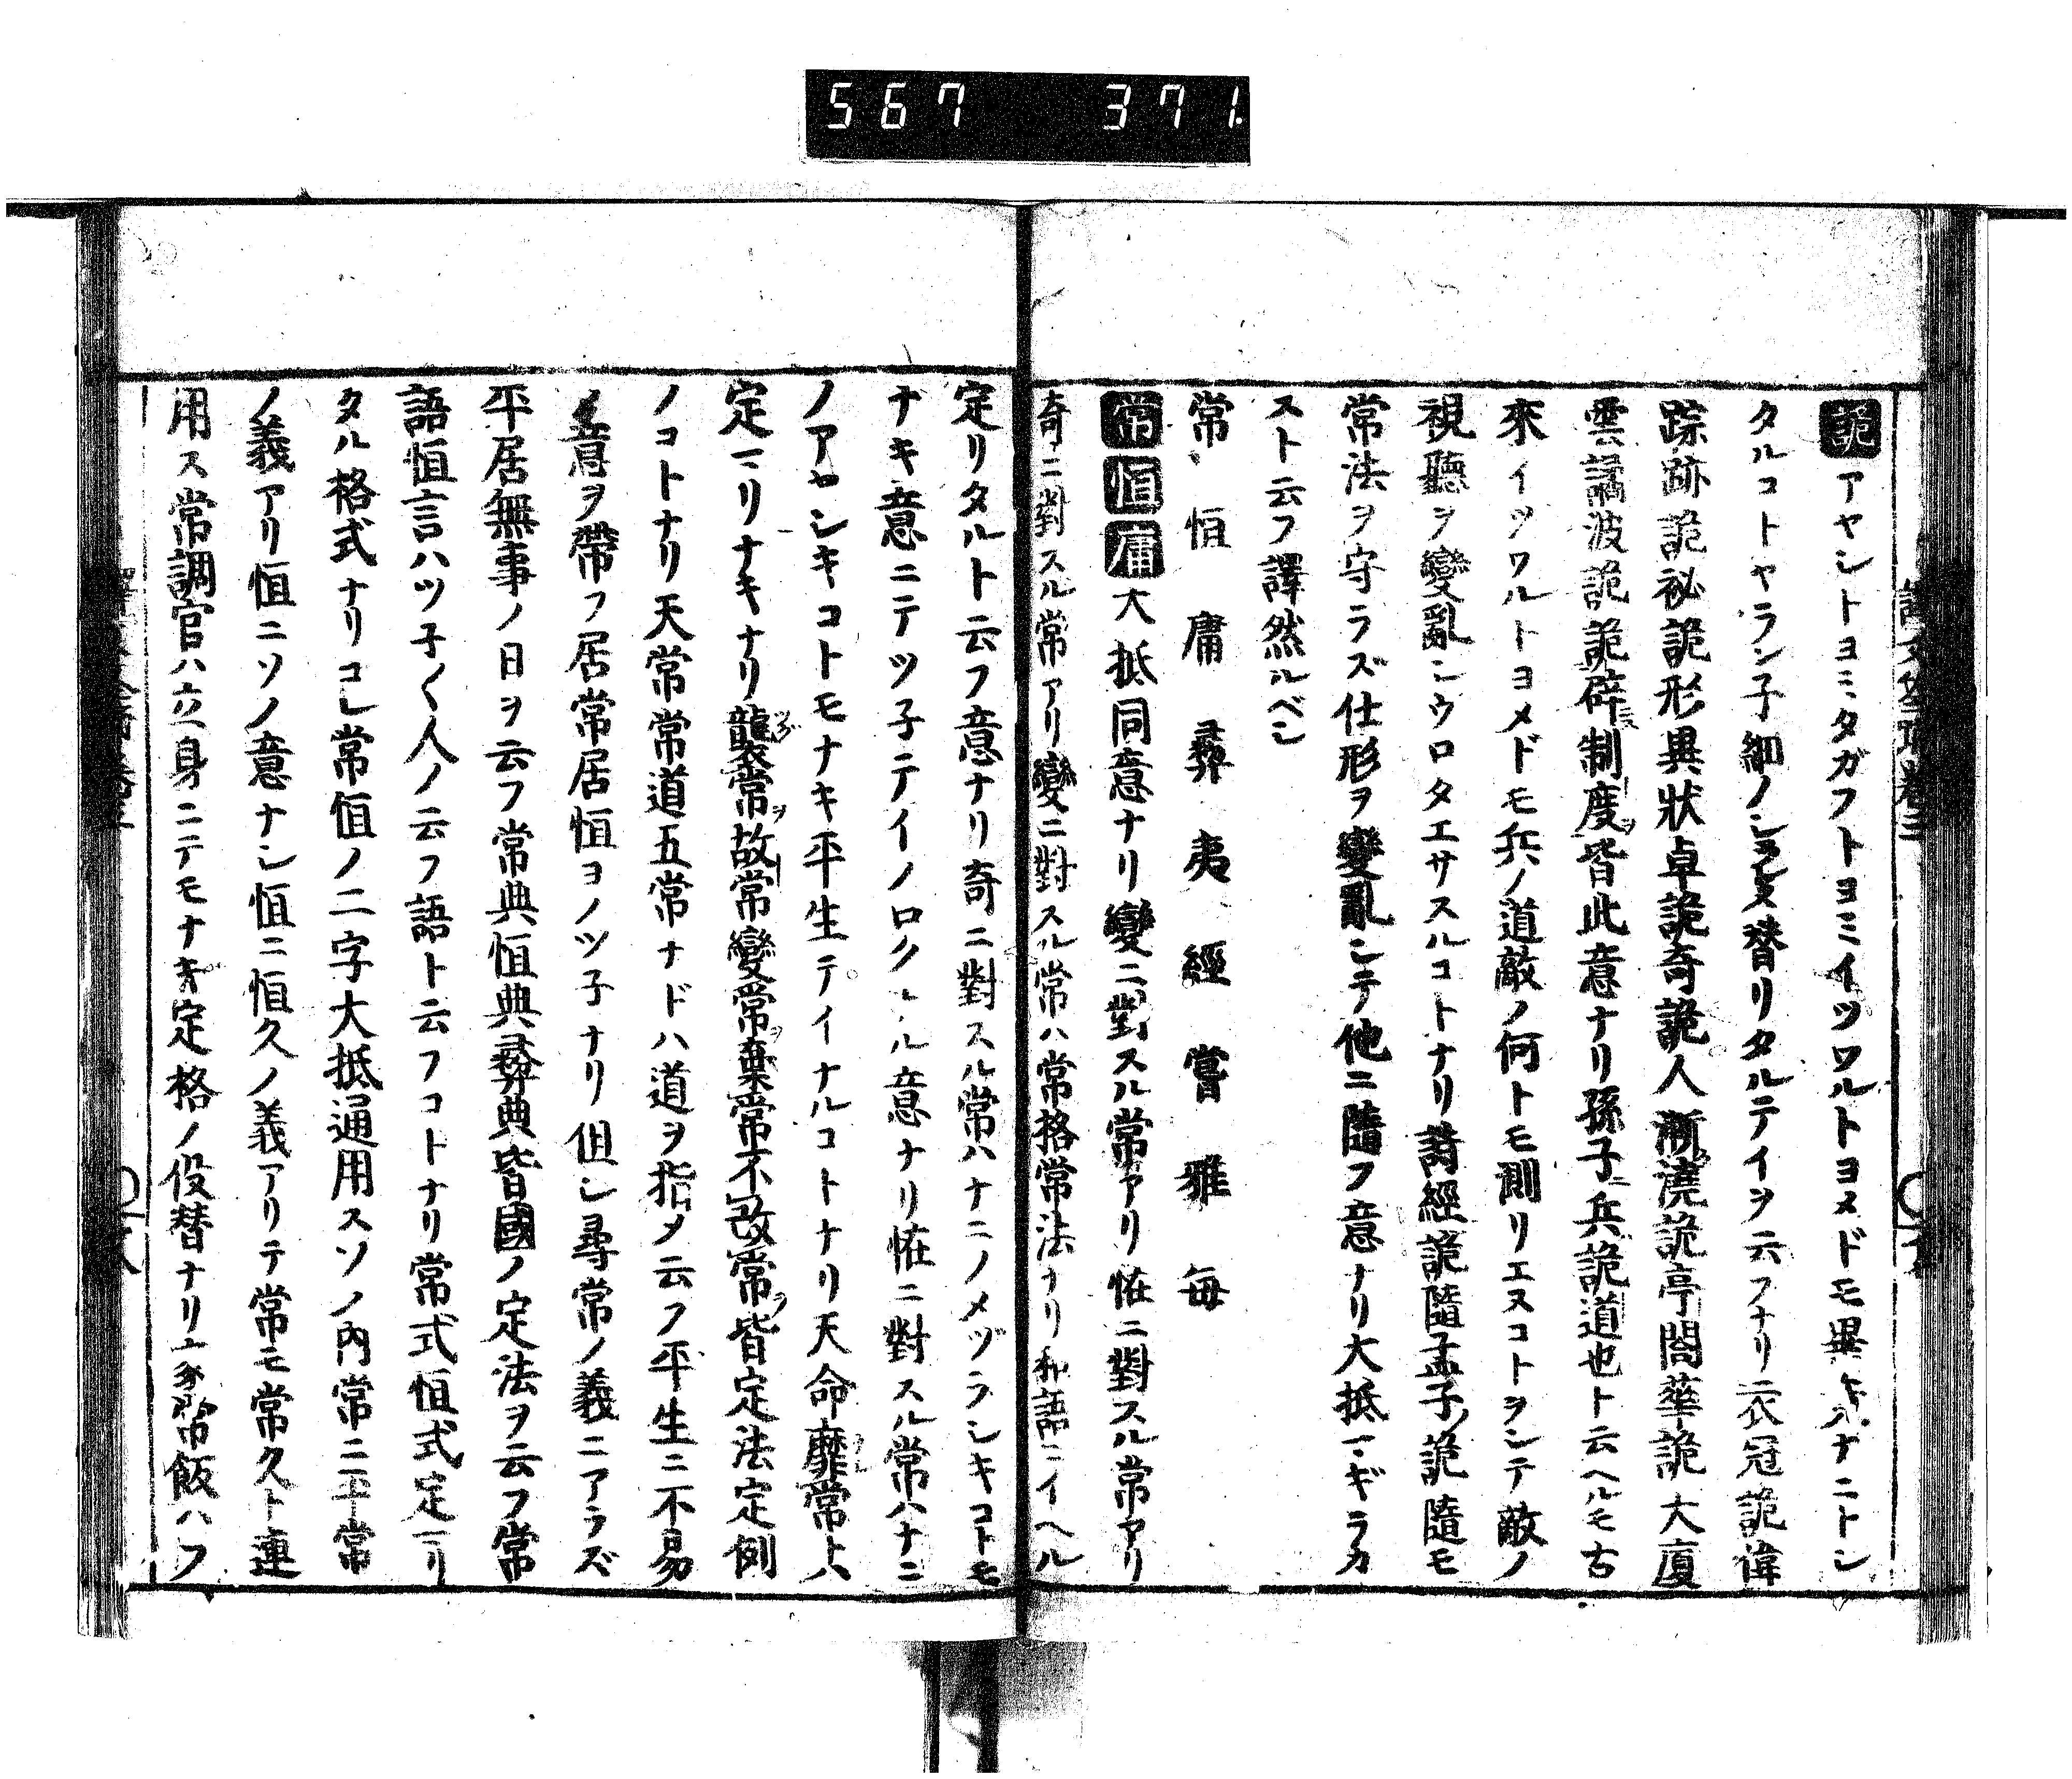 567 371
詭アヤシトヨミタガフトヨミイツワルトヨメドモ畢竟ハナニトシ
タルコトヤラン子細ノシラレヌ替リタルテイヲ云フナリ衣冠詭偉
踪跡詭祕詭形異狀卓詭奇詭人漸澆詭亭閣華詭大厦
雲譎波詭詭辟制度皆此意ナリ孫子ニ兵詭道也ト云ヘルモ古
來イツワルトヨメドモ兵ノ道敵ノ何トモ測リエヌコトヲシテ敵ノ
視聽ヲ變亂シウロタエサスルコトナリ詩經詭隨孟子ノ詭隨モ
常法ヲ守ラズ仕形ヲ變亂シテ他ニ隨フ意ナリ大抵マギラカ
スト云フ譯然ルベシ
常恒庸彜夷經嘗雅毎
常恒庸大抵同意ナリ變ニ對スル常アリ恠ニ對スル常アリ
奇ニ對スル常アリ變ニ對スル常ハ常格常法ナリ和語ニイヘル
定リタルト云フ意ナリ奇ニ對スル常ハナニノメヅラシキコトモ
ナキ意ニテツ子テイノロクナル意ナリ恠ニ對スル常ハナニ
ノアヤシキコトモナキ平生テイナルコトナリ天命靡常トハ
定マリナキナリ襲常故常變常棄常不改常皆定法定例
ノコトナリ天常常道五常ナドハ道ヲ指メ云フ平生ニ不易
ノ意ヲ帶フ居常居恒ヨノツ子ナリ但シ尋常ノ義ニアラズ
平居無事ノ日ヲ云フ常典恒典彜典皆國ノ定法ヲ云フ常
語恒言ハツ子〱人ノ云フ語ト云フコトナリ常式恒式定マリ
タル格式ナリコレ常恒ノ二字大抵通用スソノ內常ニ平常
ノ義アリ恒ニソノ意ナシ恒ニ恒久ノ義アリテ常モ常久ト連
用ス常調官ハ立身ニテモナキ定格ノ役替ナリ家常飯ハフ